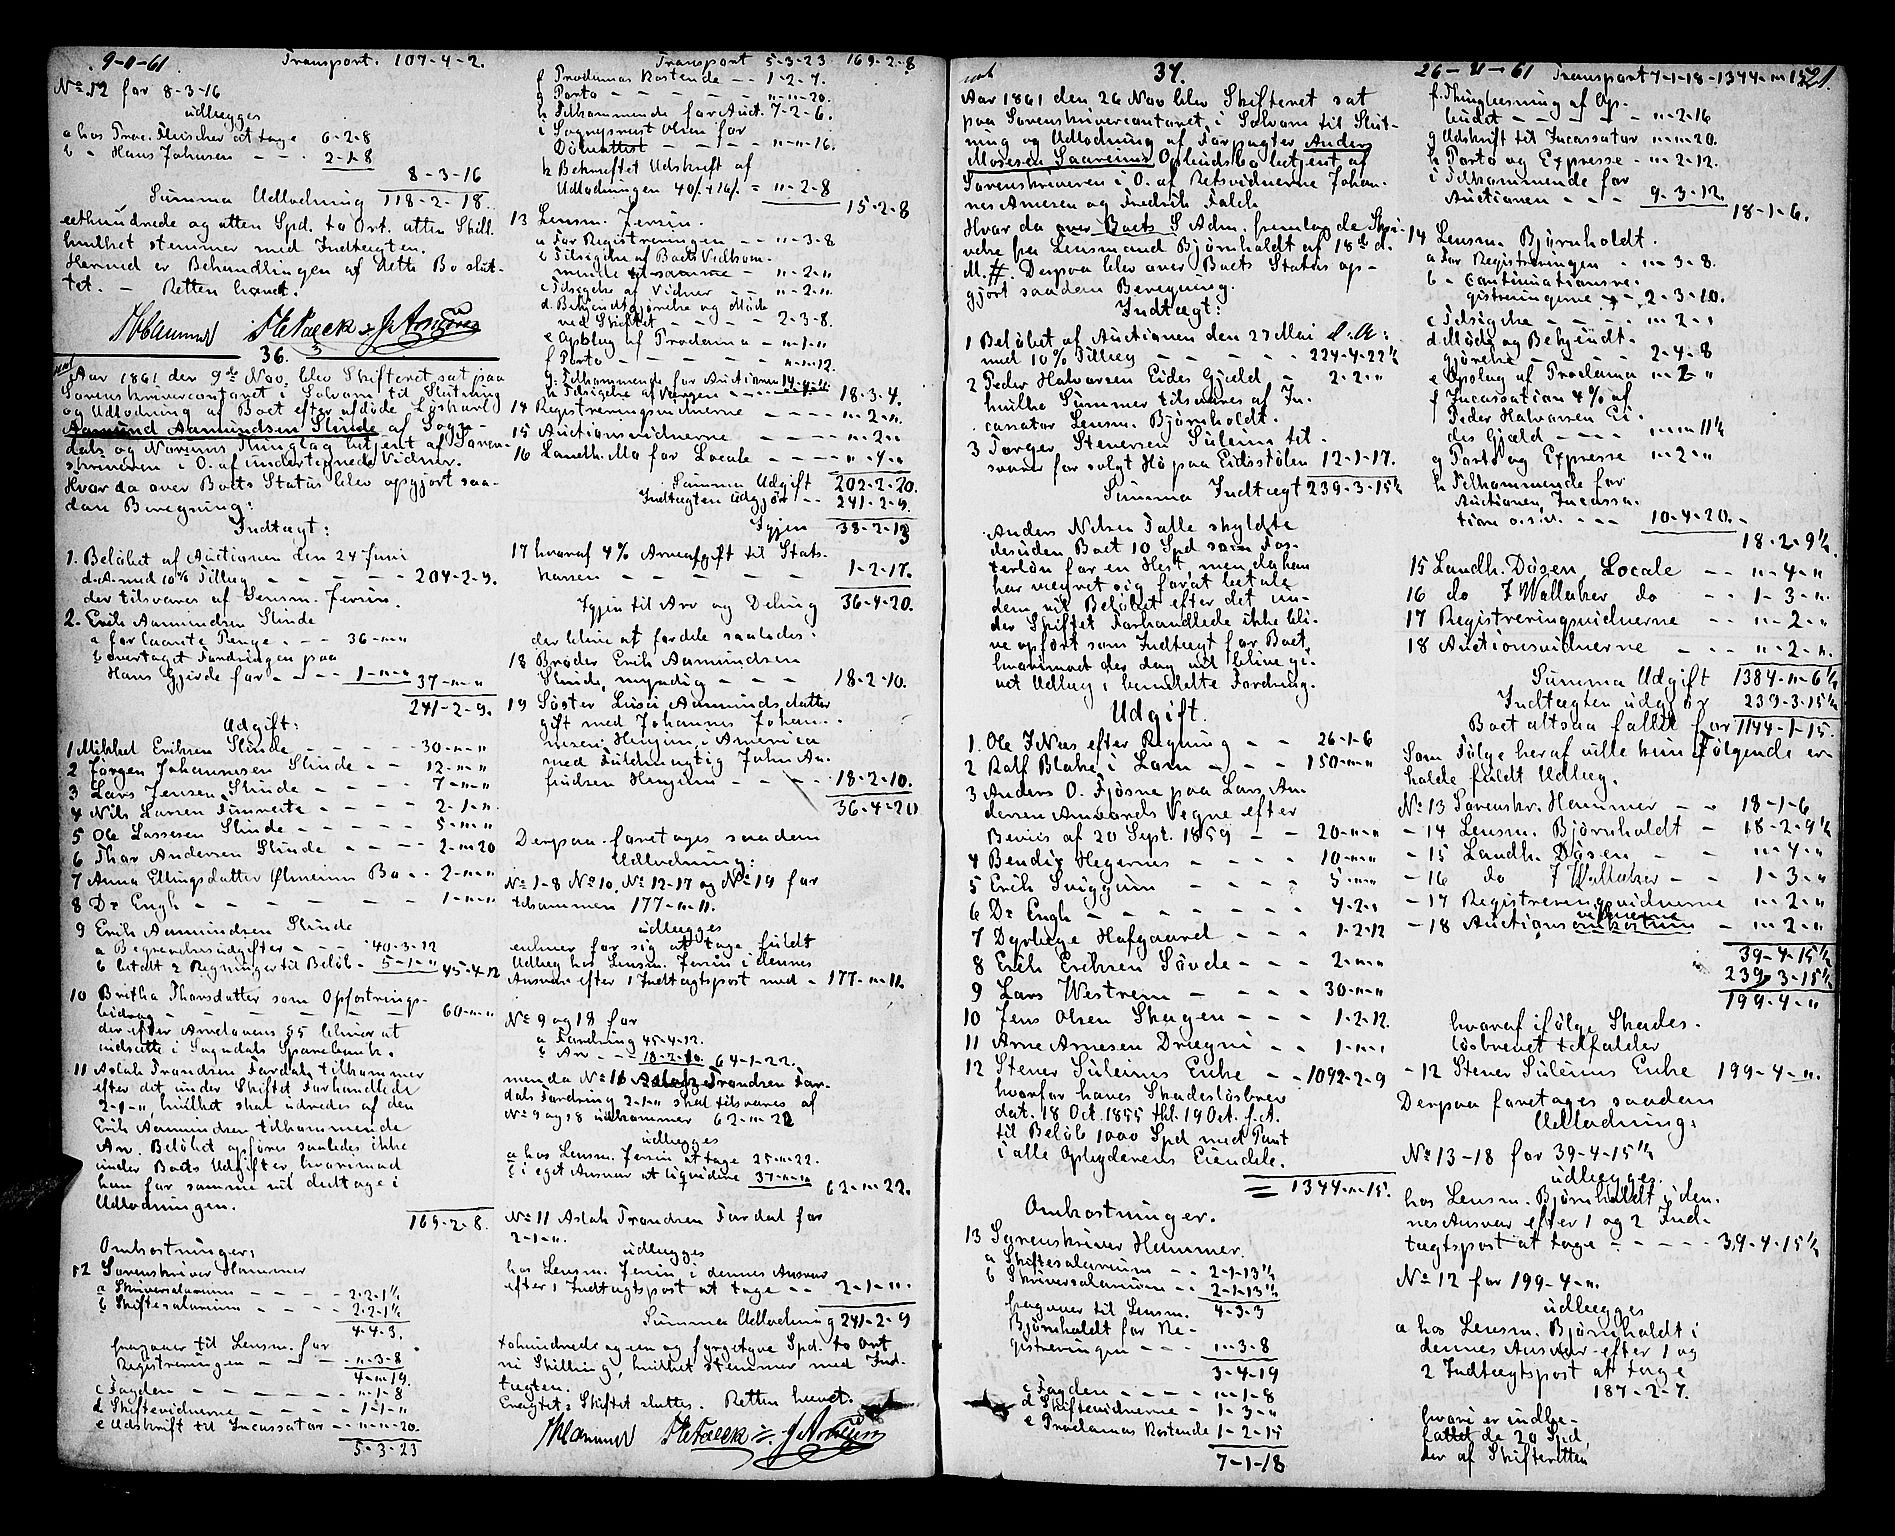 9-11-61 Transport. 107-4-2.
No 12 for 8-3-16
udlægges
a hos Proc. Fleischer at tage 6-2-8
b " Hans Johnsen - - - 2-1-8
8-3-16
Summa Udlodning 118-2-18.
eethundrede og atten Spd. to Ort. atten Skill.
hvilket stemmer med Indtægten.
Hermed er Behandlingen af dette Bo slut-
tet. - Retten hævet.
36.
Aar 1861 den 9de Nov. blev Skifteret sat paa
Sorenskrivercontoret i Solvorn til Slutning
og Udlodning af Boet efter afdøde Løskarl
Aamund Aamundsen Slinde af Sogn-
dals og Norums Thinglag betjent af Soren-
skriveren i O. af undertegnede Vidner.
Hvor da over Boets Status blev opgjort saa-
dan Beregning:
Indtægt:
1. Beløbet af Auctionen den 24 Juni
d.A. med 10% Tillæg - - - - 204-2-9.
der tilsvares af Lensm. Jersin.
2. Erik Aamundsen Slinde
a for laante Penge - - - 36-"-"
b overtaget Fordringen paa
Hans Gjerde for - - - 1-"-" 37-"-"
241-2-9.
Udgift:
1 Mikkel Eriksen Slinde - - - - 30-"-"
2 Jørgen Johannesen Slinde - - - 12-"-"
3 Lars Jensen Slinde - - - - 7-"-"
4 Nils Larsen Fimreite - - - - 2-1-"
5 Ole Lassesen Slinde - - - - 5-"-"
6 Thor Andersen Slinde - - - - 2-"-20
7 Anna Ellingsdatter Ølmeims Bo - - 2-"-"
8 Dr Engh - - - - - 1-"-"
9 Erik Aamundsen Slinde
a Begravelsesudgifter - - - 40-3-12
b betalt 2 Regninger til Beløb - 5-1-" 45-4-12
10 Britha Thorsdatter som Opfostrings-
bidrag - - - - - 60-"-"
der efter Arvelovens § 5 bliver at
indsætte i Sogndals Sparebank.
11 Aslak Trondsen Fardal tilkommer
efter det under Skiftet Forhandlede
2-1-", hvilket skal udredes af den
Erik Aamundsen tilkommende
Arv. Beløbet opføres saaledes ikke
under Boets Udgifter, hvorimod
han for samme vil deeltage i
Udlodningen.
169-2-8.
Omkostninger:
12 Sorenskriver Hammer
a Skriversalarium - - - 2-2-1½
b Skiftesalarium - - - 2-2-1½
4-4-3.
fragaaer til Lensm. for
Registreringen - - - "-3-8
4-"-19.
c Fogden - - - - - "-1-8
d Skiftevidnerne - - - - 1-1-"
e Udskrift til Incassator - - "-"-20.
5-3-23
Transport 5-3-23 169-2-8
f Proclamas Kostende - - 1-2-7.
g Porto - - - - - "-"-20.
h Tilkommende for Auct. 7-2-6.
i Sogneprest Olsen for
Dødsattest - - - "-"-16.
k Bekræftet Udskrift af
Udlodningen = "-2-8
15-2-8
13 Lensm. Jersin.
a For Registreringen - - "-3-8
b Tilsigelse af Boets Vedkom-
mende til samme - "-2-"
c Tilsigelse af Vidner - - "-2-"
d. Bekjendtgjørelse og Møde
ved Skiftet - - - - 2-3-8.
e Opslag af Proclama - - "-1-"
f Porto - - - - - "-"-12.
g. Tilkommende for Auctionen 14-4-"
h Tilsigelse af Værgen - - - 18-3-4.
14 Registreringsvidnerne - - - "-2-".
15 Auctionsvidnerne - - - - "-2-"
16 Landh. Mo for Locale - - - "-4-"
Summa Udgift 202-2-20.
Indtægten udgjør - - 241-2-9.
Igjen 38-2-13
17 hvoraf 4% Arveafgift til Stats-
kassen - - - - - 1-2-17.
Igjen til Arv og Deling 36-4-20.
der bliver at fordele saaledes:
18 Broder Erik Aamundsen
Slinde, myndig - - - 18-2-10.
19 Søster Lusie Aamundsdatter
gift med Johannes Johan-
nesen Heugim, i America
med Fuldmægtig John An-
findsen Heugum - - - 18-2-10.
36-4-20
Derpaa foretages saadan
Udlodning:
No 1-8 No 10. No 12-17 og No 19 for
tilsammen 177-"-11.
udlægges
enhver for sig at tage fuldt
Udlæg hos Lensm. Jersin i dennes
Ansvar efter 1 Indtægtspost med - 177-"-11.
No 9 og 18 for
a Fordring 45-4-12.
b Arv - - 18-2-10. 64-1-22.
men da No 11 Aslak Trondsen Far-
dals Fordring 2-1-" skal tilsvares af
No 9 og 18 udkommer 62-"-22
udlægges
a hos Lensm. Jersin at tage 25-"-22.
b i eget Ansvar at liqvidere 37-"-"
62-"-22.
No 11 Aslak Trondsen Fardal for
2-1-".
udlægges
hos Lensm. Jersin i dennes Ansvar
efter 1 Indtægtspost at tage - - 2-1-".
Summa Udlodning 241-2-9
tohundrede og een og fyrgetyve Spd. to Ort
ni Skilling, hvilket stemmer med Ind-
tægten.
Eragtet: Skiftet sluttes. Retten hævet.
37. 26-11-61
Aar 1861 den 26 Nov blev Skifteret sat
paa Sorenskrivercontoret i Solvorn til Slut-
ning og Udlodning af Forpagter Anders
Mosesen Saareims Opbudsbo betjent af
Sorenskriveren i O. af Retsvidnerne Johan-
nes Arneren og Fredrik Falck
Hvor da over Boets S Adm. fremlagde Skri-
velse fra Lensmand Bjørnholdt af 18de d.
M. #. Derpaa blev over Boets Status op-
gjort saadan Beregning.
Indtægt:
1 Beløbet af Auctionen den 27 Mai d.A:
med 10% Tillæg - - - - - 224-4-22½
2 Peder Halvorsen Eides Gjæld - - 2-2-"
hvilke Summer tilsvares af In-
cassator Lensm. Bjørnholdt.
3 Torger Stenersen Süleims til-
svar for solgt Hø paa Eidsstølen 12-1-17.
Summa Indtægt 239-3-15½
Anders Nilsen Talle skyldte
desuden Boet 10 Spd som Fos-
terløn for en Hest, men da han
har vægret sig for at betale
dem vil Beløbet efter det un-
der Skiftet Forhandlede ikke bli-
ve opført som Indtægt for Boet,
hvorimod der dog vil blive gi-
vet Udlæg i bemeldte Fordring.
Udgift.
1. Ole J Næs efter Regning - - 26-1-6
2 Rolf Blake i Lom - - - 150-"-"
3 Anders O. Fjøsne paa Lars An-
dersen Amvards Vegne efter
Beviis af 20 Sept. 1859 - - 20-"-"
4 Bendix Hegernes - - - - 10-"-"
5 Erik Sviggum - - - - 5-"-"
6 Dr Engh - - - - - - 4-2-"
7 Dyrlæge Hofgaard - - - 1-2-12
8 Erik Eriksen Søvde - - - 2-"-"
9 Lars Westrem - - - - 30-"-"
10 Jens Olsen Skagen - - - 1-2-12.
11 Arne Arnesen Drægni - - 1-"-"
12 Stener Süleims Enke - - 1092-2-9
hvorfor haves Skadesløsbrev
dat. 18 Oct. 1855 thl. 19 Oct. f. A.
til Beløb 1000 Spd med Pant
i alle Opbyderens Eiendele.
= 1344-"-15.
Omkostninger.
13 Sorenskriver Hammer.
a Skiftesalarium - - 2-1-13½
b Skriversalarium - - 2-1-13½
4-3-3
fragaaer til Lensm.
Bjørnholdt for Re-
gistreringen - - - "-3-8
3-4-19
c Fogden - - - - "-1-8
d Skiftevidnerne - - 1-3-"
e Proclamas Kostende 1-2-15
7-1-18
Transport 7-1-18-1344-"-15 21.
f. Thinglæsning af Op-
budet - - - - "-2-16
g Udskrift til Incassator "-"-20.
h Porto og Expresse - "-2-12.
i Tilkommende for
Auctionen - - - 9-3-12.
18-1-6.
14 Lensm. Bjørnholdt.
a For Registreringen - "-3-8.
b - Continuationsre-
gistreringerne - - 2-3-10.
c Tilsigelse - - - - "-2-"
d Møde og Bekjendt-
gjørelse - - - - 2-4-8
e Opslag af Proclama "-2-"
f Incassation 4% af
Peder Halvorsen Ei-
des Gjæld - - - - "-"-11½
g Porto og Expresse "-2-"
h Tilkommende for
Auctionen, Incassa-
tion o.s.v. - - - 10-4-20.
18-2-9½.
15 Landh. Døsen, Locale - - "-4-"
16 do J Wallaker do - - 1-3-".
17 Registreringsvidnerne - - "-2-"
18 Auctionsvidnerne - - - "-2-".
Summa Udgift 1384-"-6½
Indtægten udgjør 239-3-15½
Boet altsaa fallit for 1144-1-15.
Som Følge heraf ville kun Følgende er-
holde fuldt Udlæg.
No 13 Sorenskr. Hammer - - 18-1-6
- 14 Lensm. Bjørnholdt - 18-2-9½
- 15 Landh. Døsen - - "-4-"
- 16 do J Wallaker - - 1-3-"
- 17 Registreringsvidnerne "-2-"
- 18 Auctionsomkostnin vidnerne - "-2-"
39-4-15½
239-3-15½
199-4-"
hvoraf ifølge Skades-
løsbrevet tilfalder
- 12 Stener Süleims Enke 199-4-".
Derpaa foretages saadan
Udlodning:
No 13-18 for 39-4-15½
udlægges.
hos Lensm. Bjørnholdt i den-
nes Ansvar efter 1 og 2 Ind-
tægtspost at tage - - - - 39-4-15½
No 12 for 199-4-".
udlægges
a hos Lensm. Bjørnholdt i
dennes Ansvar efter 1 og
2 Indtægtspost at tage
187-2-7.
hvori er indbe-
fattet de 20 Spd,
der af Skifteretten